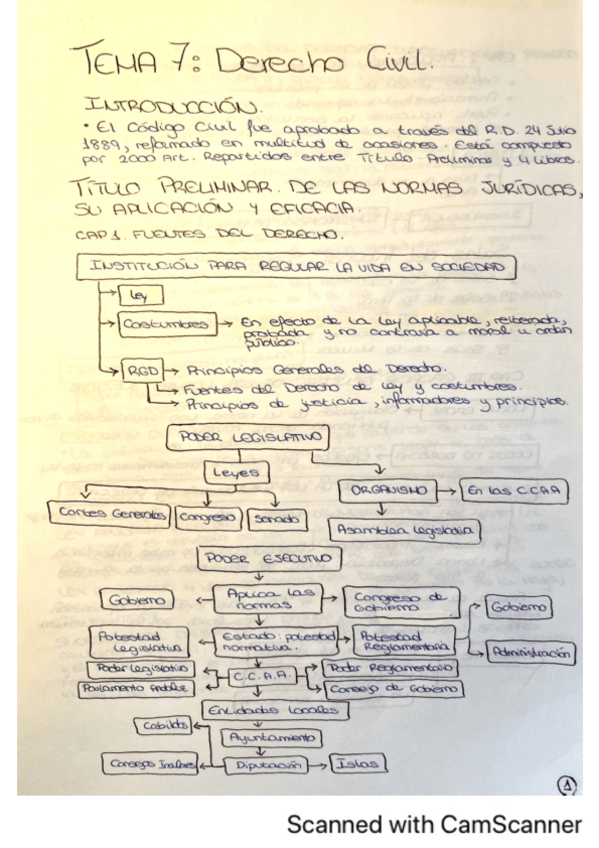 TEMA 7: Derecho Civil.
INTRODUCCIÓN.
• El Código Civil fue aprobado a través del R.D. 24 Julio
1889, reformado en multitud de ocasiones. Está compuesto
por 2000 Art. Repartidos entre Título Preliminar y 4 Libros.
TÍTULO PRELIMINAR. DE LAS NORMAS JURÍDICAS,
SU APLICACIÓN Y EFICACIA.
CAP 1. FUENTES DEL DERECHO.
INSTITUCIÓN PARA REGULAR LA VIDA EN SOCIEDAD
Ley
Costumbres → En efecto de la Ley aplicable, reiterada,
probada y no contraria a moral u orden
público.
RGD → Principios Generales del Derecho.
Fuentes del Derecho de ley y costumbres.
Principios de justicia, informadores y principios.
PODER LEGISLATIVO
Leyes
ORGANISMO → En las CCAA
Cortes Generales Congreso Senado
Asamblea Legislativa
PODER EJECUTIVO
Gobierno ← Aplica las normas → Congreso de Gobierno
Gobierno
Potestad Legislativa ← Estado: potestad normativa. → Potestad Reglamentaria
Administración
Poder Legislativo
Poder Reglamentario
C.C.A.A.
Parlamento Andaluz
Consejo de Gobierno
Entidades Locales
Cabildos
Ayuntamiento
Consejos Insulares ← Diputación → Islas
1
Scanned with CamScanner